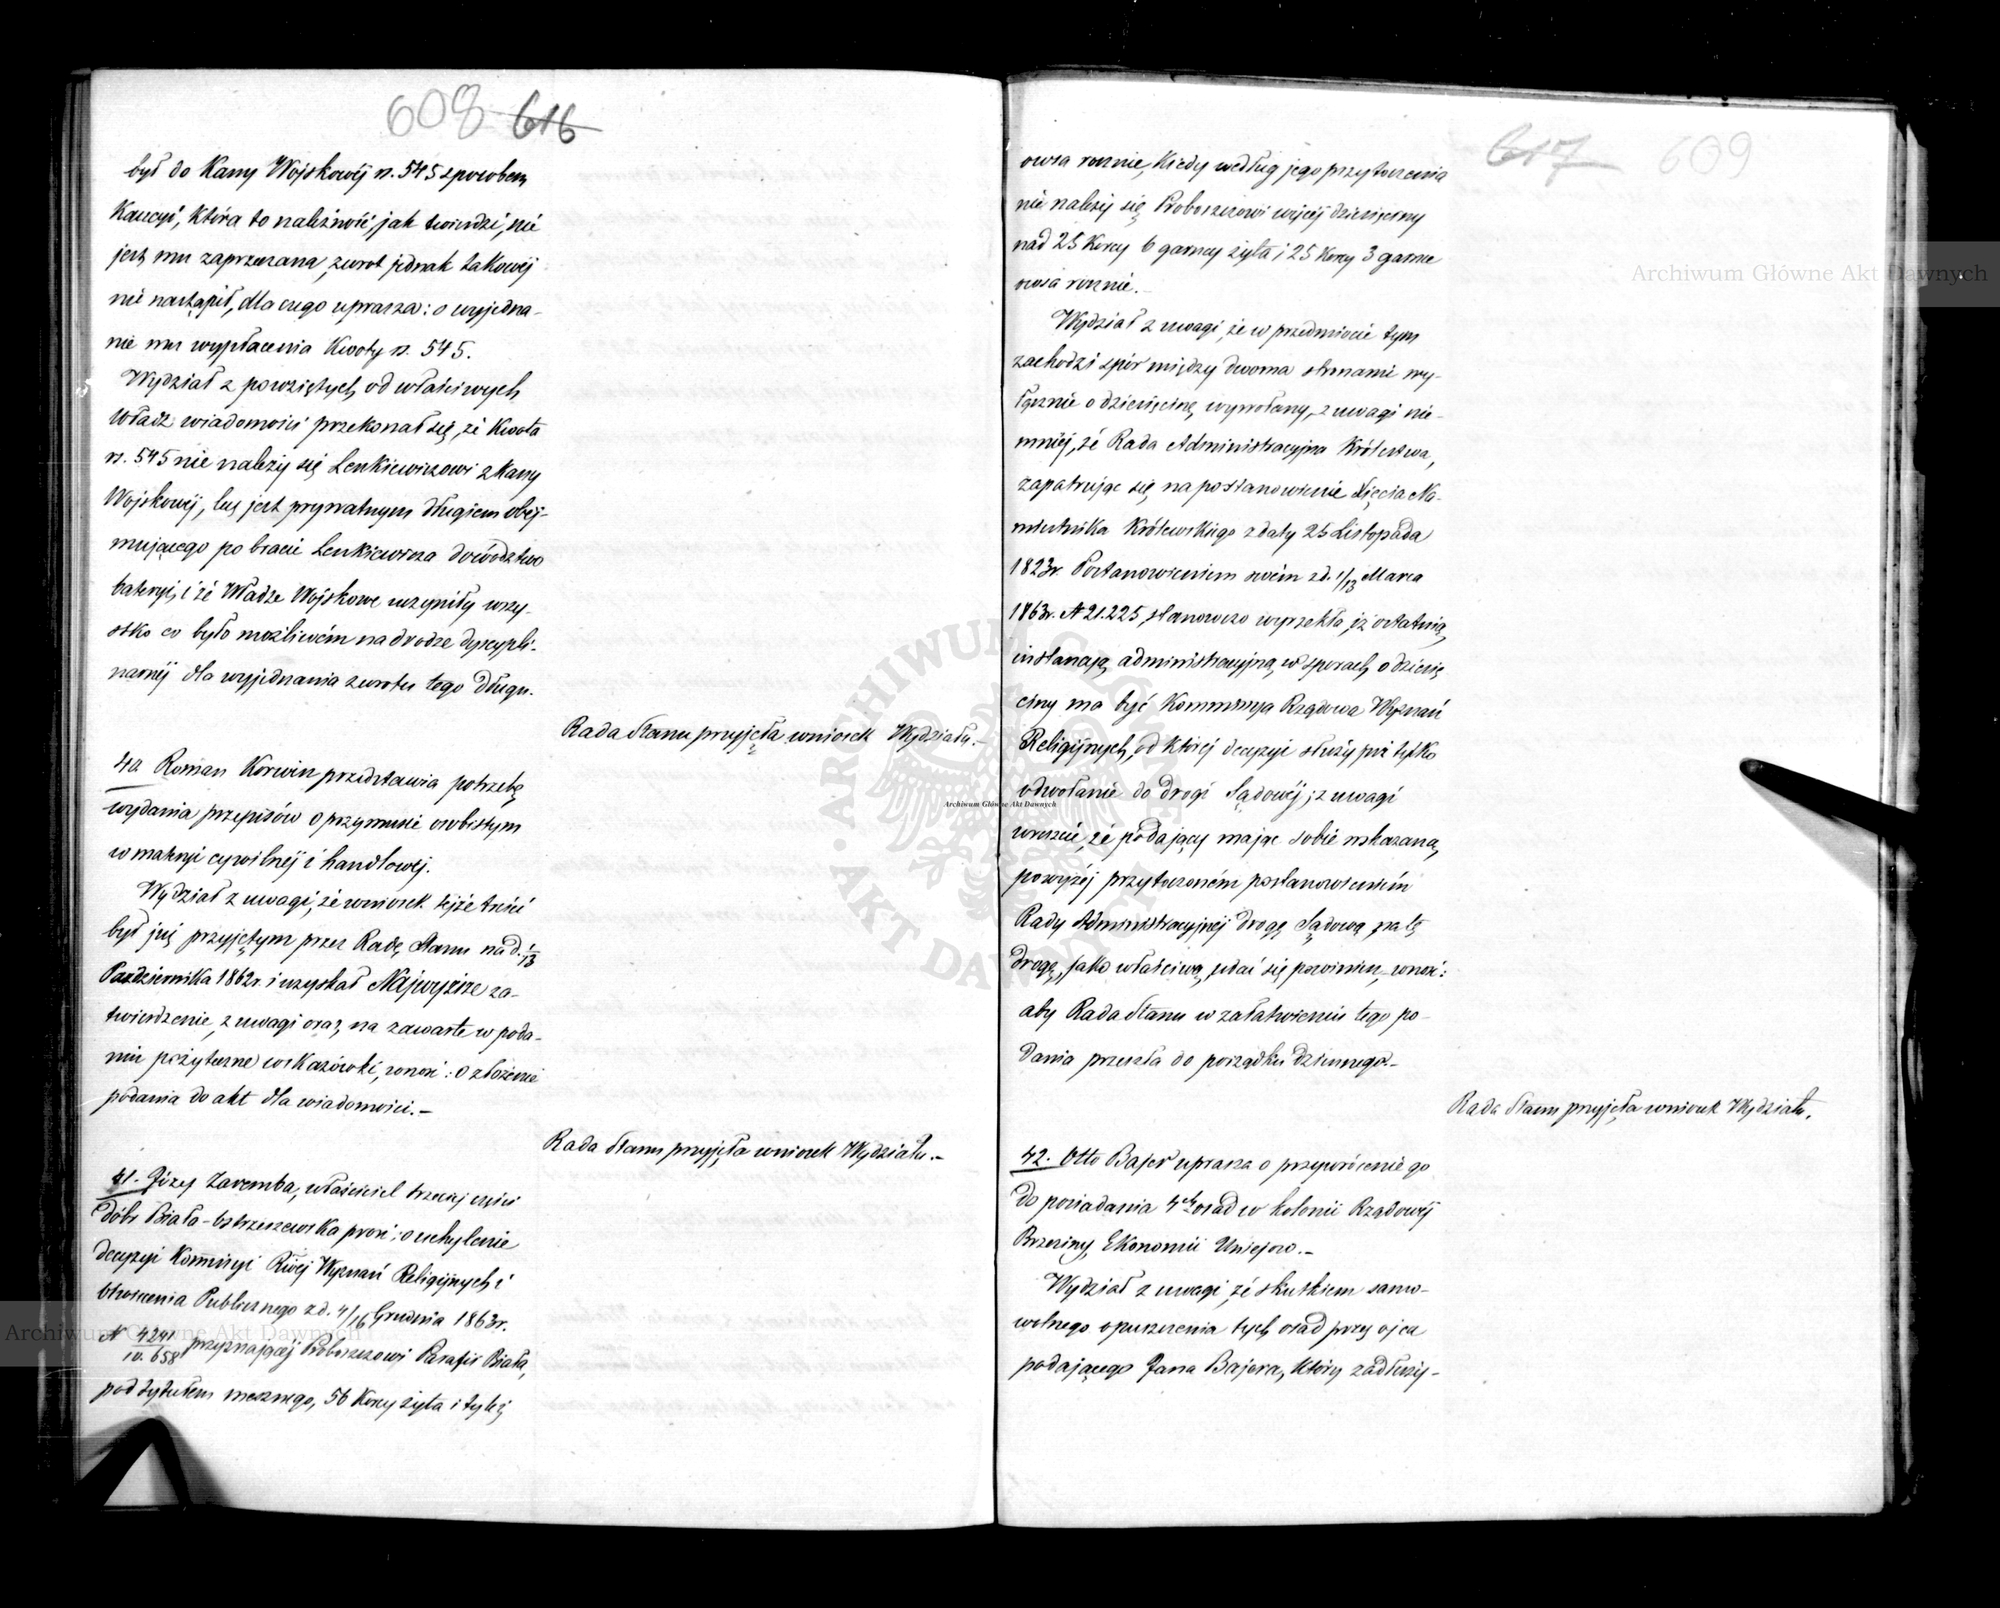 608 616
był do Kassy Wojskowéj rs. 545 sposobem
Kaucyi, która to należność, jak twierdzi, nie
jest mu zaprzeczana, zwrot jednak takowéj
nie nastąpił, dla czego uprasza: o wyjedna-
nie mu wypłacenia Kwoty rs. 545.
Wydział z powziętych od właściwych
Władz wiadomości przekonał się, że Kwota
rs. 545 nie należy się Lenkiewiczowi z Kassy
Wojskowéj, lecz jest prywatnym długiem obej-
mującego po bracie Lenkiewicza dowództwo
bateryi, i że Władze Wojskowe uczyniły wszy-
stko co było możliwém na drodze dyscypli-
narnéj dla wyjednania zwrotu tego długu.
Rada Stanu przyjęła wniosek Wydziału.—
40 Roman Korwin przedstawia potrzebę
wydania przepisów o przymusie osobistym
w materyi cywilnéj i handlowéj.
Wydział z uwagi, że wniosek tejże treści
był już przyjętym przez Radę Stanu na d. 1/13
Października 1862 r. i uzyskał Najwyższe za-
twierdzenie, z uwagi oraz na zawarte w poda-
niu pożyteczne wskazówki, wnosi: o złożenie
podania do akt dla wiadomości.—
Rada Stanu przyjęła wniosek Wydziału.—
41. Józef Zaremba, właściciel trzeciej części
dóbr Biała-bstrzeszewska prosi: o uchylenie
decyzyi Kommissyi Rłwéj Wyznań Religijnych i
Oświecenia Publicznego z d. 4/16 Grudnia 1863 r.
N 4241/10.658 przyznającéj Proboszczowi Parafii Biała,
pod tytułem mesznego, 56 Korcy żyta i tyleż
617 609
owsa rocznie, Kiedy według jego przytoczenia
nie należy się Proboszczowi więcéj dziesięciny
nad 25 Korcy 6 garncy żyta i 25 Korcy 3 garnce
owsa rocznie.—
Wydział z uwagi, że w przedmiocie tym
zachodzi spór między dwoma stronami wy-
łącznie o dziesięcinę wywołany, z uwagi nie-
mniéj, że Rada Administracyjna Królestwa,
zapatrując się na postanowienie Xięcia Na-
miestnika Królewskiego z daty 25 Listopada
1823 r. Postanowieniem swém z d. 1/13 Marca
1863 r. N 21.225, stanowczo wyrzekła, iż ostatnią
instancją administracyjną w sporach o dziesię
ciny ma być Kommissya Rządowa Wyznań
Religijnych, od któréj decyzyi służy już tylko
odwołanie do drogi Sądowéj; z uwagi
wreszcie, że podający mając sobie wskazaną
powyżéj przytoczoném postanowieniem
Rady Administracyjnéj drogę Sądową, na tę
drogę, jako właściwą, udać się powinien, wnosi:
aby Rada Stanu w załatwieniu tego po-
dania przeszła do porządku dziennego.—
Rada Stanu przyjęła wniosek Wydziału.
42. Otto Bajer uprasza o przywrócenie go
do posiadania 4ch osad w kolonii Rządowéj
Brzeziny, Ekonomii Uniejow.—
Wydział z uwagi, że skutkiem samo-
wolnego opuszczenia tych osad przez ojca
podającego Jana Bajera, który zadłuży-
Archiwum Główne Akt Dawnych
Archiwum Główne Akt Dawnych
Archiwum Główne Akt Dawnych
ARCHIWUM GŁÓWNE AKT DAWNYCH